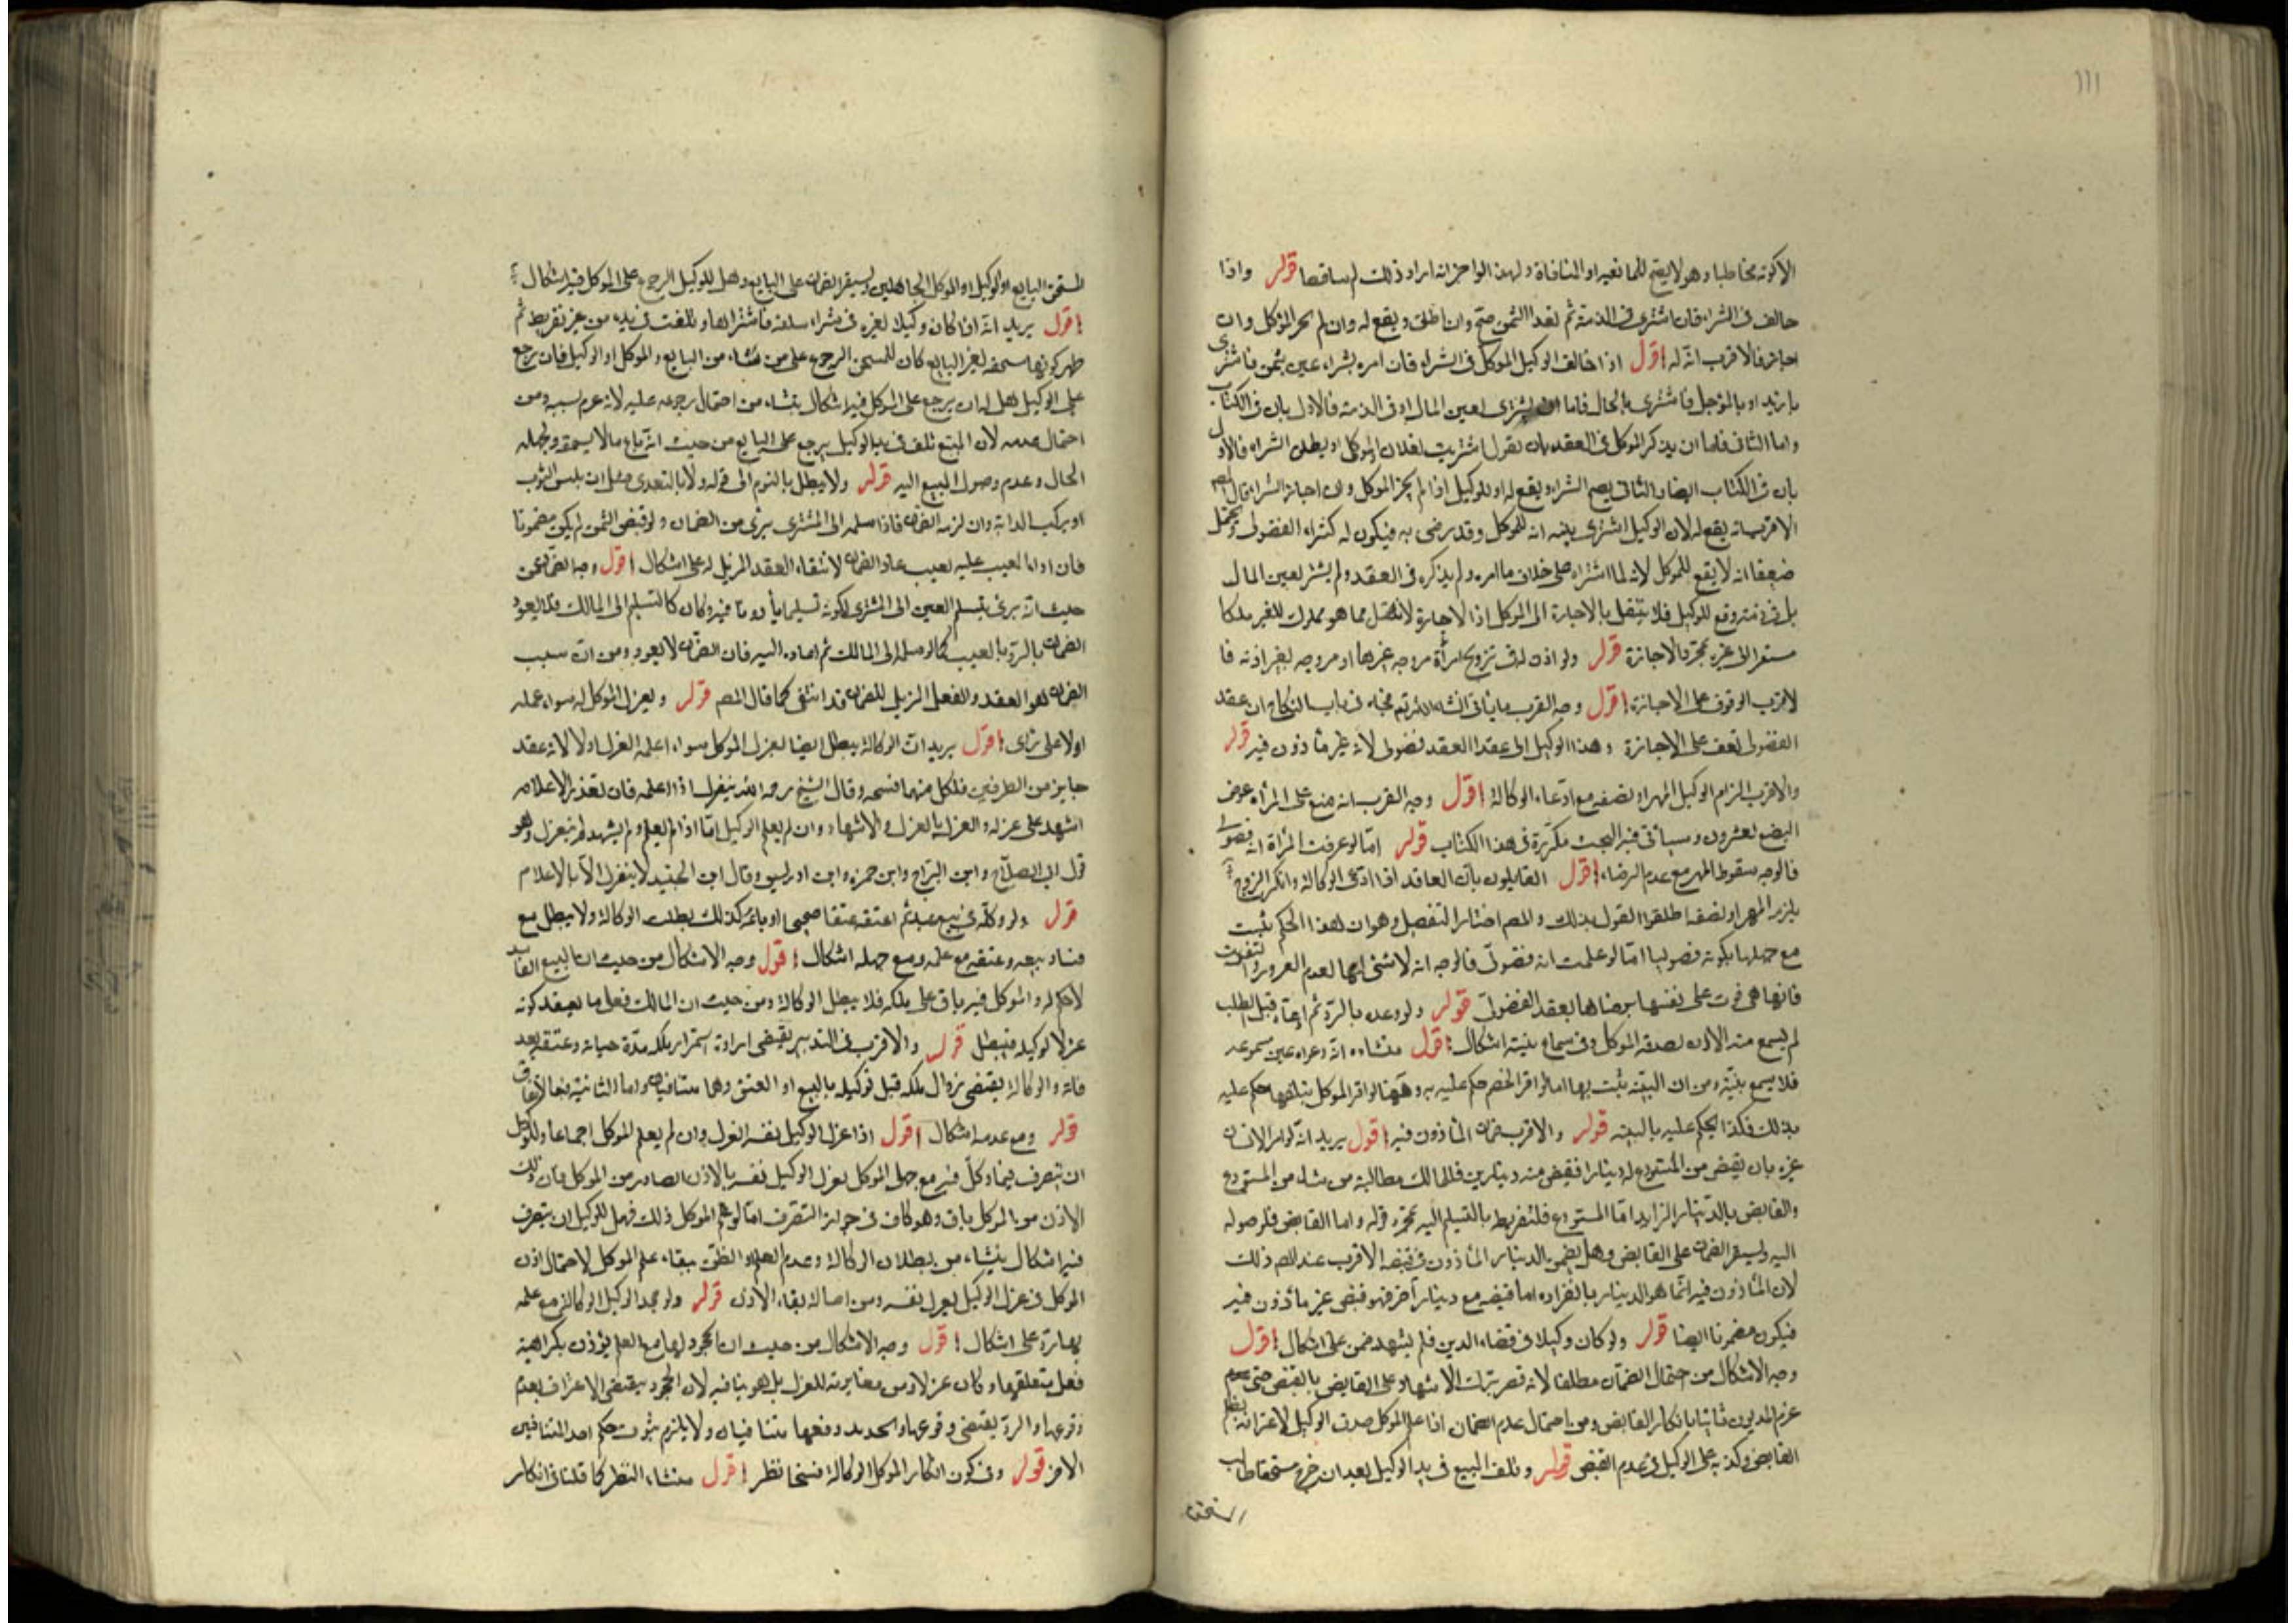 ١١١
الا كونه مخاطبا وهو لا يقع للمانعيه او المنافاة ولهذا لو اخبر انه اراد ذلك لم ساقصا قوله واذا
خالف فى الشراء فان اشترى فى الذمة ثم نقد الثمن صح وان اطلق ويقع له وان لم يجز الموكل وان
اجاز فالاقرب انه له اقول اذا خالف الوكيل الموكل فى الشراء فان امره بشراء عين بثمن فاشترى
بازيد او بالمؤجل فاشترى بالحال فاما ان يشترى بعين المال او فى الذمة فالاول بان فى الكتاب
واما الثانى فاما ان يذكر الموكل فى العقد بان يقول اشتريت لفلان الموكل او يطلق الشراء فالاول
بان فى الكتاب ايضا والثانى يصح الشراء ويقع له اى للوكيل اذا لم يجز الموكل وان اجاز الشراء قال المصـ
الاقرب انه يقع له لان الوكيل اشترى بنيه انه للموكل وقد رضى به فيكون له كشراء الفضولى ويحتمل
ضعيفا انه لا يقع للموكل لانه لما اشتراه على خلاف ما امره ولم يذكره فى العقد ولم يشتر بعين المال
بل فى ذمته وقع للوكيل فلا ينتقل بالاجازة الى الموكل اذ الاجازة لا تنقل مما هو مملوك للغير ملكا
مستقرا الى غيره بمجرد الاجازة قوله ولو اذن له فى تزويج امرأة فزوجه غيرها او زوجه بغير اذنه فا
لاقرب الوقوف على الاجازة اقول وجه القرب ما ياتى ان شاء الله تعالى فى باب النكاح ان عقد
الفضولى يقف على الاجازة وهذا الوكيل الى عقد العقد فضولى لانه غير مأذون فيه قوله
والاقرب الزام الوكيل المهر او نصفه مع ادعاء الوكالة اقول وجه القرب انه ضيع على المرأة عوض
البضع بغروره وسيأتى فيه البحث مكررة فى هذا الكتاب قوله اما لو عرفت المرأة انه فضولى
فالوجه سقوط المهر مع عدم الرضاء اقول القايلون بان العاقد اذا ادعى الوكالة وانكر الزوج
يلزمه المهر او نصفه اطلقوا القول بذلك والمصـ اختار التفصيل وهو ان هذا الحكم يثبت
مع جهلها بكونه فضوليا اما لو علمت انه فضولى فالوجه انه لا شئ لها لعدم الغرور والتفويت
فانها هى فوت على نفسها برضاها بعقد الفضولى قوله ولو وعده بالرد ثم ادعاه قبل الطلب
لم يسمع منه الا ان يصدقه الموكل وفى سماع بينته اشكال اقول منشاءه انه دعواه غير مسموعه
فلا يسمع بينته ومن ان البينة يثبت بها ما لو اقر الخصم حكم عليه به وههنا لو اقر الموكل بتلفها حكم عليه
بذلك فكذا يحكم عليه بالبينه قوله والاقرب ضمان المأذون فيه اقول يريد انه لو امر الانسان
غيره بان يقبض من المستودع له دينارا فقبض منه دينارين فللمالك مطالبة من شاء من المستودع
والقابض بالدينار الزايد اما المستودع فلتفريطه بالتسليم اليه بمجرد قوله واما القابض فلوصوله
اليه ويستقر الضمان على القابض وهل يضمن بالدينار المأذون فى قبضه الاقرب عند المصـ ذلك
لان المأذون فيه انما هو الدينار بانفراده اما قبضه مع دينار آخر فهو قبض غير مأذون فيه
فيكون مضمونا ايضا قوله ولو كان وكيلا فى قضاء الدين فلم يشهد ضمن على اشكال اقول
وجه الاشكال من احتمال الضمان مطلقا لانه قصر بترك الاشهاد على القابض بالقبض حتى
غرم المديون ثانيا بانكار القابض ومن احتمال عدم الضمان اذا علم الموكل صدق الوكيل لاعترافه بظلم
القابض وكذبه على الوكيل فى عدم القبض قوله وتلف المبيع فى يد الوكيل بعد ان خرج مستحقا طالب
المستحق
المستحق البايع او الوكيل او الموكل الجاهلين ويستقر الضمان على البايع وهل للوكيل الرجوع على الموكل فيه اشكال
اقول يريد انه اذا كان وكيلا لغيره فى شراء سلعة فاشتراها وتلفت فى يده من غير تفريط ثم
ظهر كونها مستحقه لغير البايع كان للمستحق الرجوع على من شاء من البايع والموكل او الوكيل فان رجع
على الوكيل هل له ان يرجع على الموكل فيه اشكال ينشاء من احتمال رجوعه عليه لانه غرم بسببه ومن
احتمال عدمه لان المبيع تلف فى يد الوكيل يرجع على البايع من حيث انه باع ما لا يستحقه ولجهله
الحال وعدم وصول المبيع اليه قوله ولا يبطل بالنوم الى قوله ولا بالتعدى مثل ان يلبس الثوب
او يركب الدابة وان لزمه الضمان فاذا سلمه الى المشترى برئ من الضمان ولو قبض الثمن لم يكن مضمونا
فان رد العيب عليه بعيب عاد الضمان لانتفاء العقد المزيل له على اشكال اقول وجه الضمان من
حيث انه برئ بتسلم العين الى المشترى لكونه تسليما مأذونا فيه وكان كالتسلم الى المالك فلا يعود
الضمان بالرد بالعيب كما لو سلمه الى المالك ثم اعاده اليه فان الضمان لا يعود ومن ان سبب
الضمان هو العقد والفعل المزيل للضمان قد انتفى كما قال المصـ قوله وبعزل الموكل له سواء علمه
اولا على رأى اقول يريد ان الوكالة يبطل ايضا بعزل الموكل سواء اعلمه العزل اولا لانه عقد
جايز من الطرفين فلكل منهما فسخه وقال الشيخ رحمه الله ينعزل اذا اعلمه فان تعذر الاعلام
اشهد على عزله والعزل بالعزل والاشهاد وان لم يعلم الوكيل اما اذا لم يعلم ولم يشهد لم ينعزل وهو
قول ابى الصلاح وابن البراج وابن حمزه وابن ادريس وقال ابن الجنيد لا ينعزل الا بالاعلام
قوله ولو وكله فى بيع عبد ثم اعتقه عتقا صحيحا او باعه كذلك بطلت الوكالة ولا يبطل مع
فساد بيعه وعتقه مع علمه ومع جهله اشكال اقول وجه الاشكال من حيث ان البيع الفاسد
لا حكم له والموكل فيه باق على ملكه فلا يبطل الوكالة ومن حيث ان المالك فعل ما يعتقد كونه
عزلا لوكيله فيبطل قوله والاقرب فى التدبير يقتضى ارادة استمرار ملكه مدة حياته وعتقه بعد
فاته والوكالة يقتضى زوال ملكه قبل توكيله بالبيع او العتق وهما متنافيان واما الثانية فبالاتفاق
قوله ومع عدمه اشكال اقول اذا عزل الوكيل نفسه انعزل وان لم يعلم الموكل اجماعا وللوكيل
ان يتصرف فيما وكل فيه مع جهل الموكل بعزل الوكيل نفسه بالاذن الصادر من الموكل فان ذلك
الاذن من الموكل باق وهو كاف فى جواز التصرف اما لو علم الموكل ذلك فهل للوكيل ان يتصرف
فيه اشكال ينشاء من بطلان الوكالة وعدم العلم او الظن ببقاء علم الموكل لاحتمال اذن
الموكل فى عزل الوكيل بعزل نفسه ومن اصالة بقاء الاذن قوله ولو جحد الوكيل الوكالة مع علمه
بها رد على اشكال اقول وجه الاشكال من حيث ان الجحود لها مع العلم يؤذن بكراهية
فعل متعلقها وكان عزلا ومن مغايرته للعزل بل هو ينافيه لان الجحود يقتضى الاعتراف بعدم
وقوعها والرد يقتضى وقوعها والجحد ودفعها متنافيان ولا يلزم ثبوت حكم احد المتنافيين
الآخر قوله وفى كون انكار الموكل الوكالة فسخا نظر اقول منشاء النظر كما قلنا فى انكار